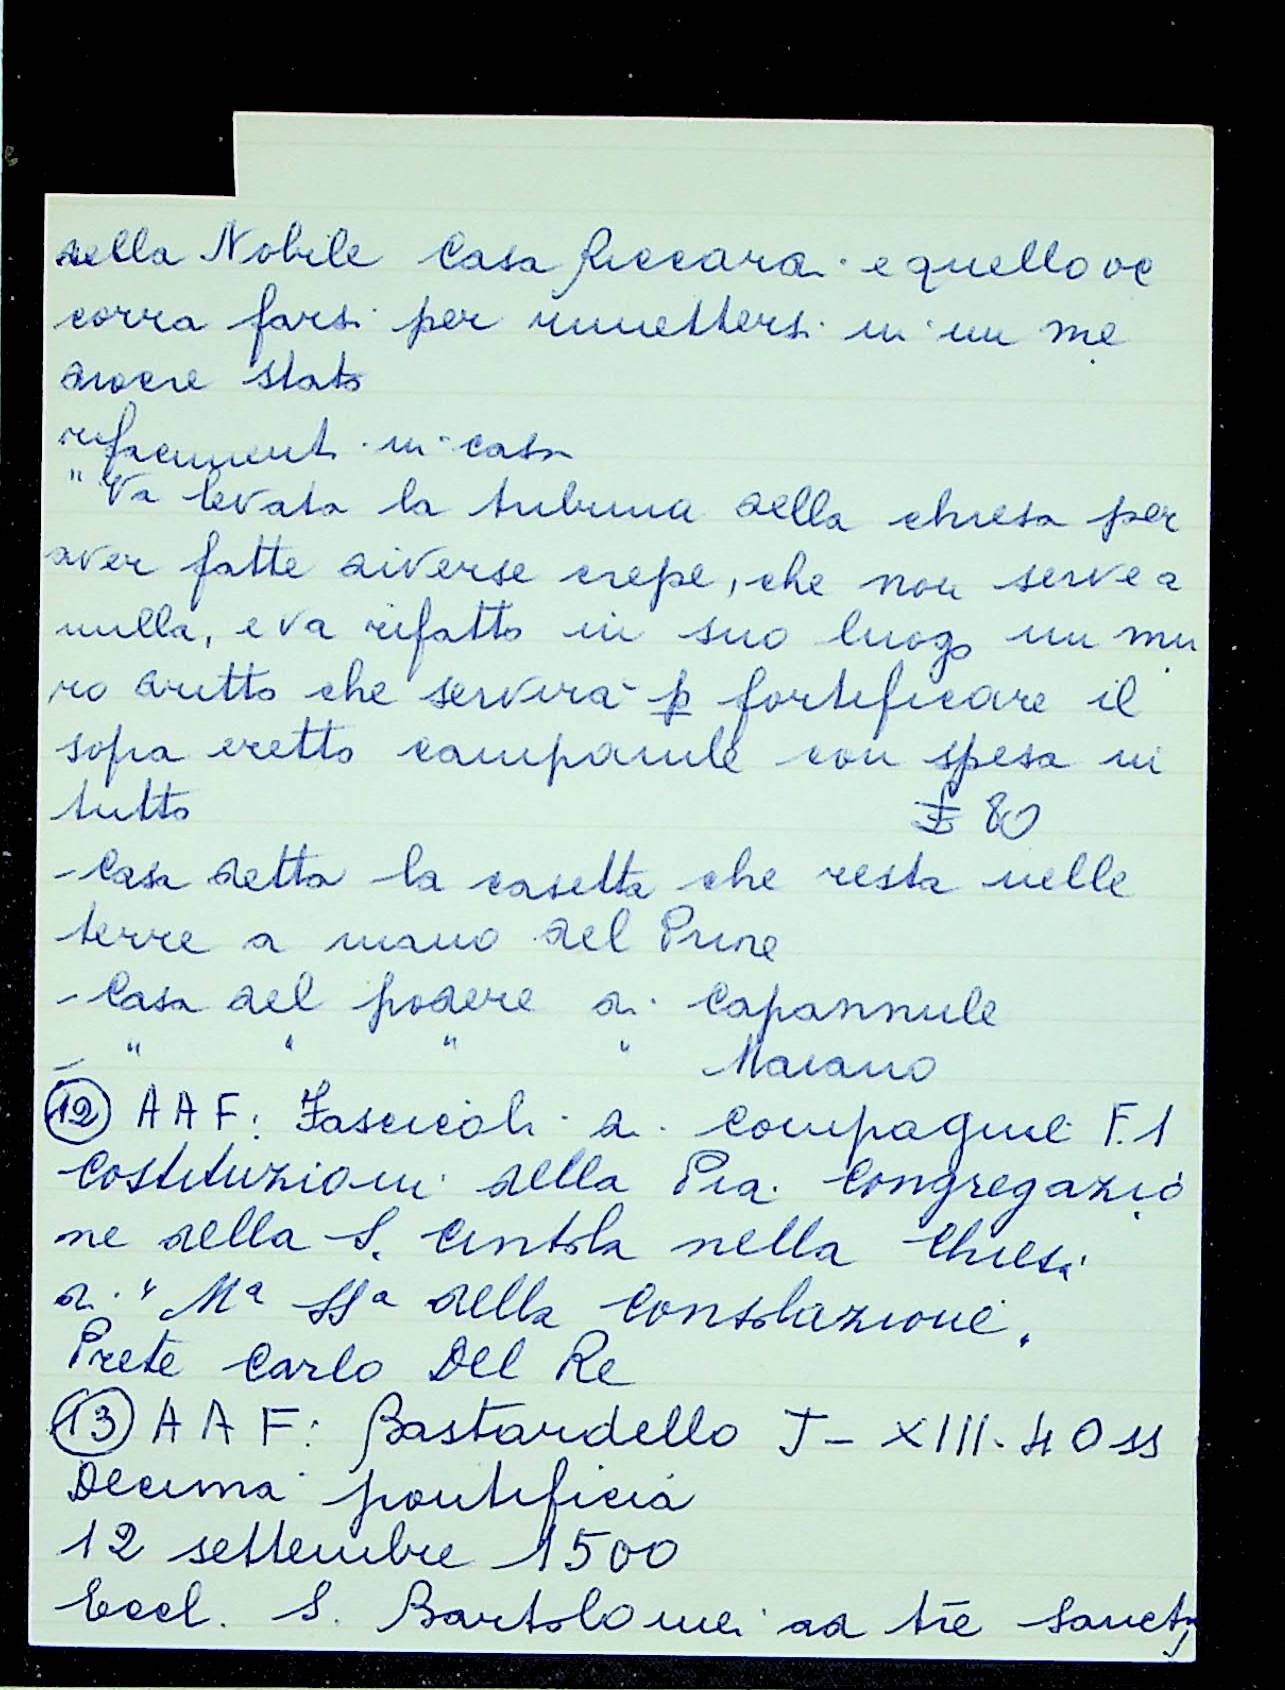 della Nobile Casa Riccardi e quello oc
corra farsi per rimettersi in un me
diocre stato
rifacimenti in casa
"Va levata la tribuna della chiesa per
aver fatte diverse crepe, che non serve a
nulla, e va rifatto in suo luogo un mu
ro dritto che servirà p fortificare il
sopra eretto campanile con spesa in
tutto £ 80
- Casa detta la casetta che resta nelle
terre a mano del Priore
- Casa del podere di Capannule
- " " " " Maiano
12 A A F: Fascicoli di compagnie F. 1
Costituzioni della Pia Congregazio
ne della S. Cintola nella Chiesa
di " Mª SSª della Consolazione.
Prete Carlo Del Re
13 A A F: Bastardello J - XIII. 40 ss
Decima pontificia
12 settembre 1500
Eccl. S. Bartolomei ad tre Sancti